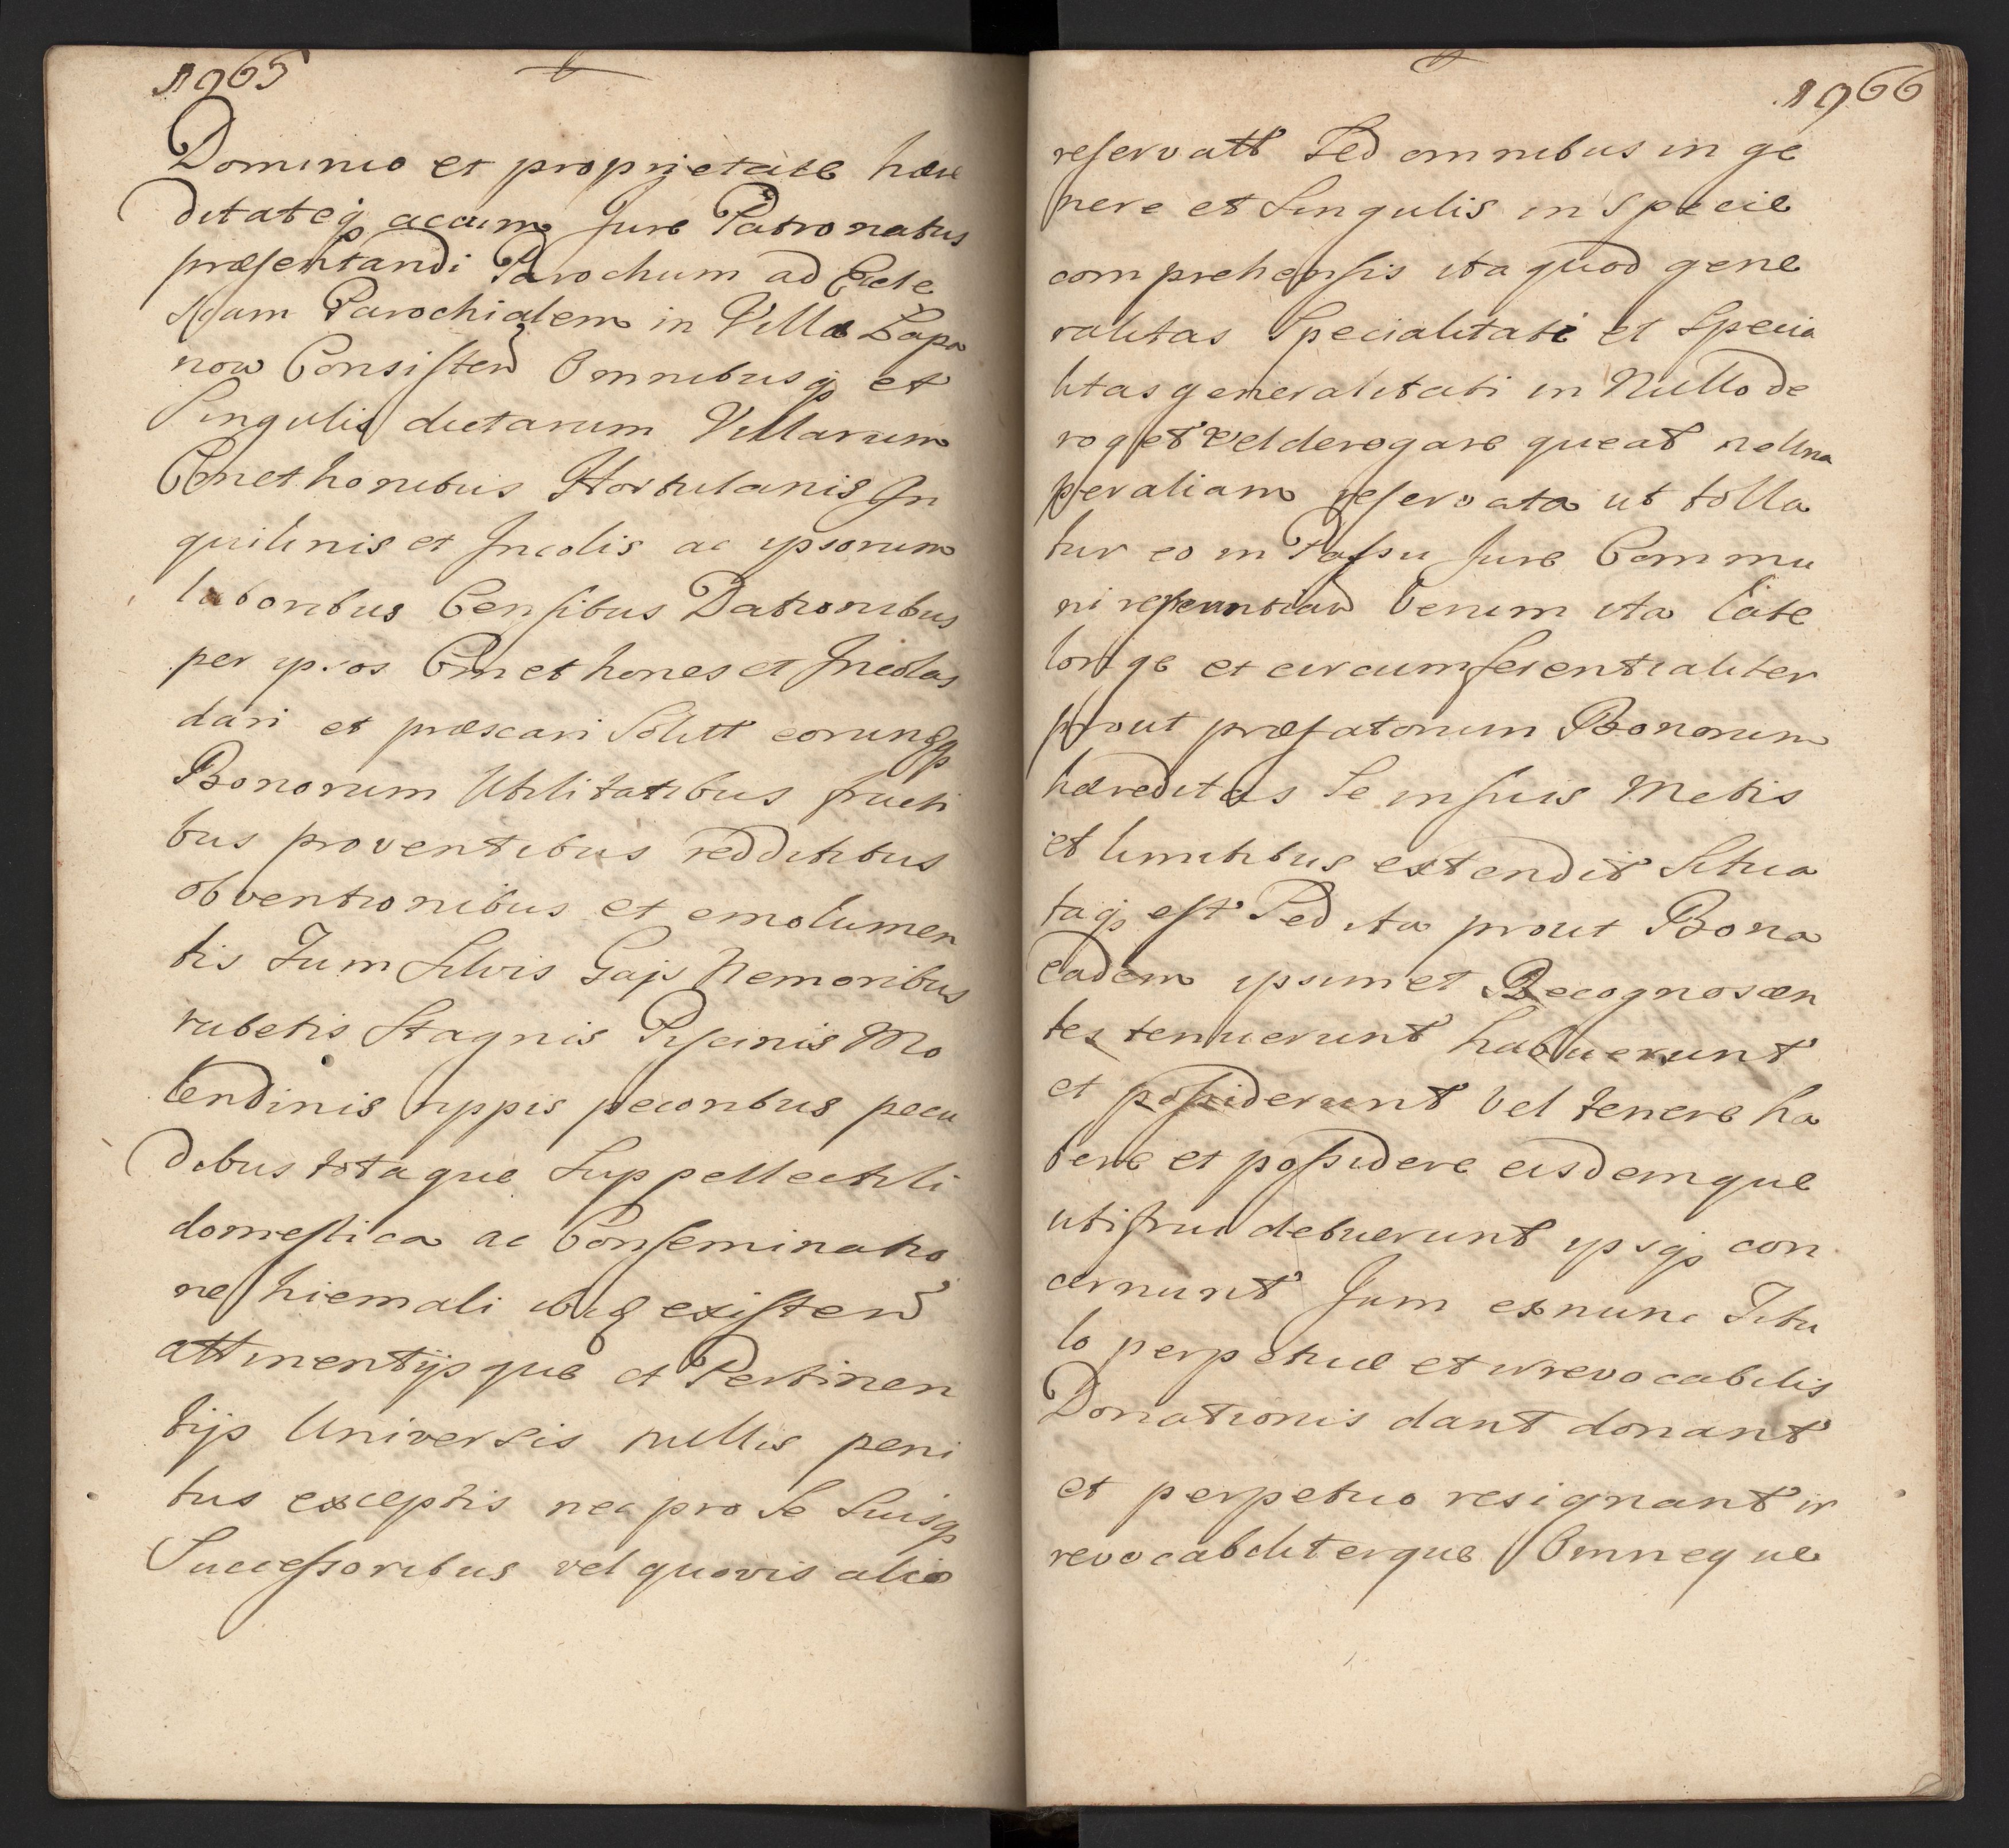 1965
Dominio et proprjetate hære
ditateq; accum Jure Patronatus
præsentandi Parochum ad Eccle
siam Parochialem in Villa Lapa
now Consisten Omnibusq; et
Singulis dictarum Villarum
Cmethonibus Hortulanis In
quilinis et Incolis ac ipsorum
laboribus Censibus Dationibus
per ipsos Cmethones et Incolas
dari et præscari Solitt eorundq;
Bonorum Utilitatibus fructi
bus proventibus redditibus
obventionibus et emolumen
tis Tum Silvis Gajs Nemoribus
rubetis Stagnis Piscinis Mo
lendinis uppis pecoribus pecu
dibus totaque Suppellectili
domestica ac Conseminatio
ne hiemali ibiq existen
attinentijsque et Pertinen
tijs Universis nullis peni
tus exceptis nec pro Se Suisq;
Successoribus vel quovis alio
1966
reservatt Sed omnibus in ge
nere et Singulis in Specie
comprehensis ita quod gene
ralitas Specialitati et Specia
litas generalitati in Nullo de
roget vel derogare queat nec una
per aliam reservata ut tolla
tur eo in Passu Jure Commu
ni renuntian Verum ita late
longe et circumferentialiter
prout præfatorum Bonorum
hæreditas Se in suis Metis
et limitibus extendit Situa
taq; est Sed ita prout Bona
eadem ipsimet Recognoscen
tes tenuerunt habuerunt
et possiderunt Vel tenere ha
bere et possidere eisdemque
utifrui debuerunt ipsq; con
cernunt Jam ex nunc Titu
lo perpetuæ et irrevocabilis
Donationis dant donant
et perpetuo resignant ir
revocabiliterque Omneque